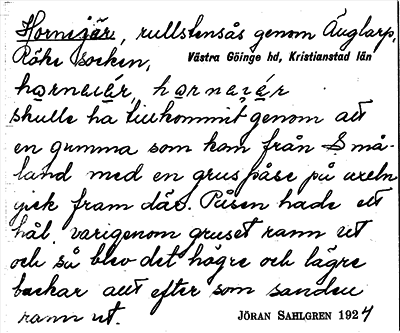 Hornsjär, rullstensås genom Änglarp,
Röke socken, Västra Göinge hd, Kristianstad län
skulle ha tillkommit genom att
en gumma som kom från Små-
land med en gruspåse på axeln
gick fram där. Påsen hade ett
hål varigenom gruset rann ut
och så blev det högre och lägre
backar allt efter som sanden
rann ut. JÖRAN SAHLGREN 1924